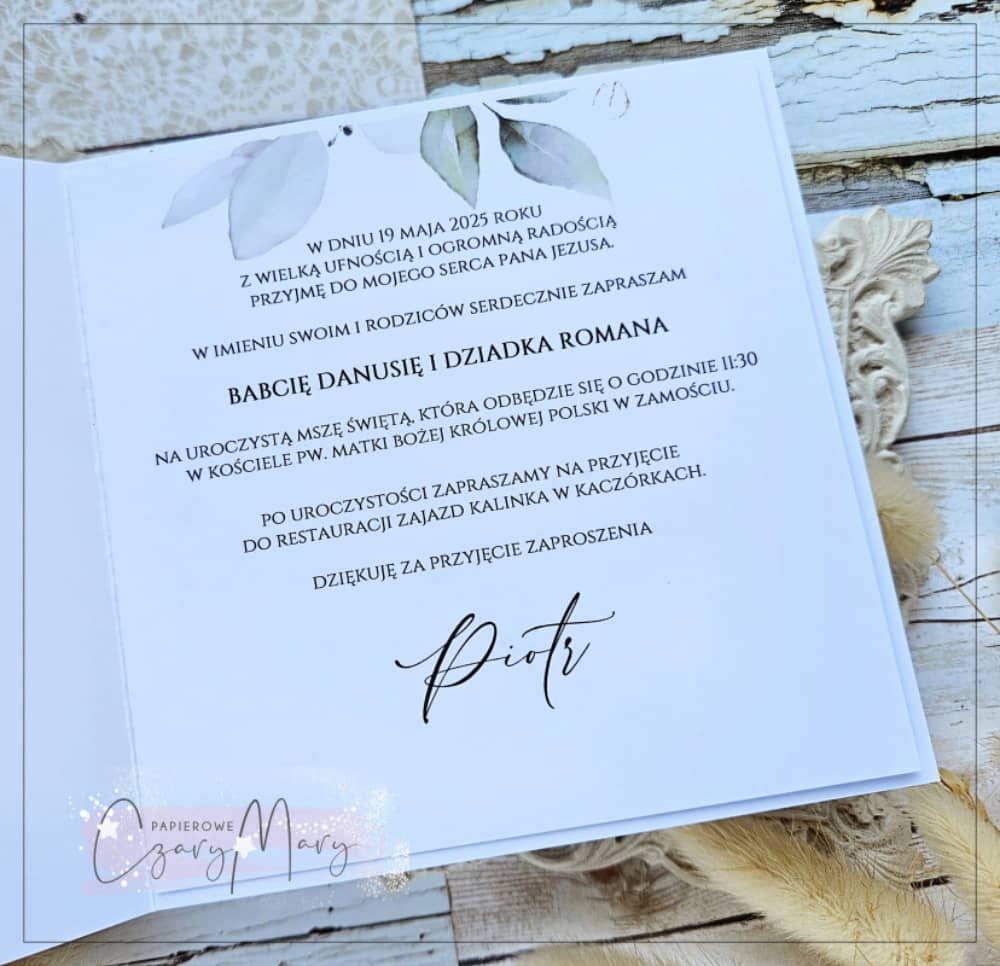 W DNIU 19 MAJA 2025 ROKU
Z WIELKĄ UFNOŚCIĄ I OGROMNĄ RADOŚCIĄ
PRZYJMĘ DO MOJEGO SERCA PANA JEZUSA.
W IMIENIU SWOIM I RODZICÓW SERDECZNIE ZAPRASZAM
BABCIĘ DANUSIĘ I DZIADKA ROMANA
NA UROCZYSTĄ MSZĘ ŚWIĘTĄ, KTÓRA ODBĘDZIE SIĘ O GODZINIE 11:30
W KOŚCIELE PW. MATKI BOŻEJ KRÓLOWEJ POLSKI W ZAMOŚCIU.
PO UROCZYSTOŚCI ZAPRASZAMY NA PRZYJĘCIE
DO RESTAURACJI ZAJAZD KALINKA W KACZÓRKACH.
DZIĘKUJĘ ZA PRZYJĘCIE ZAPROSZENIA
Piotr
PAPIEROWE
Czary Mary